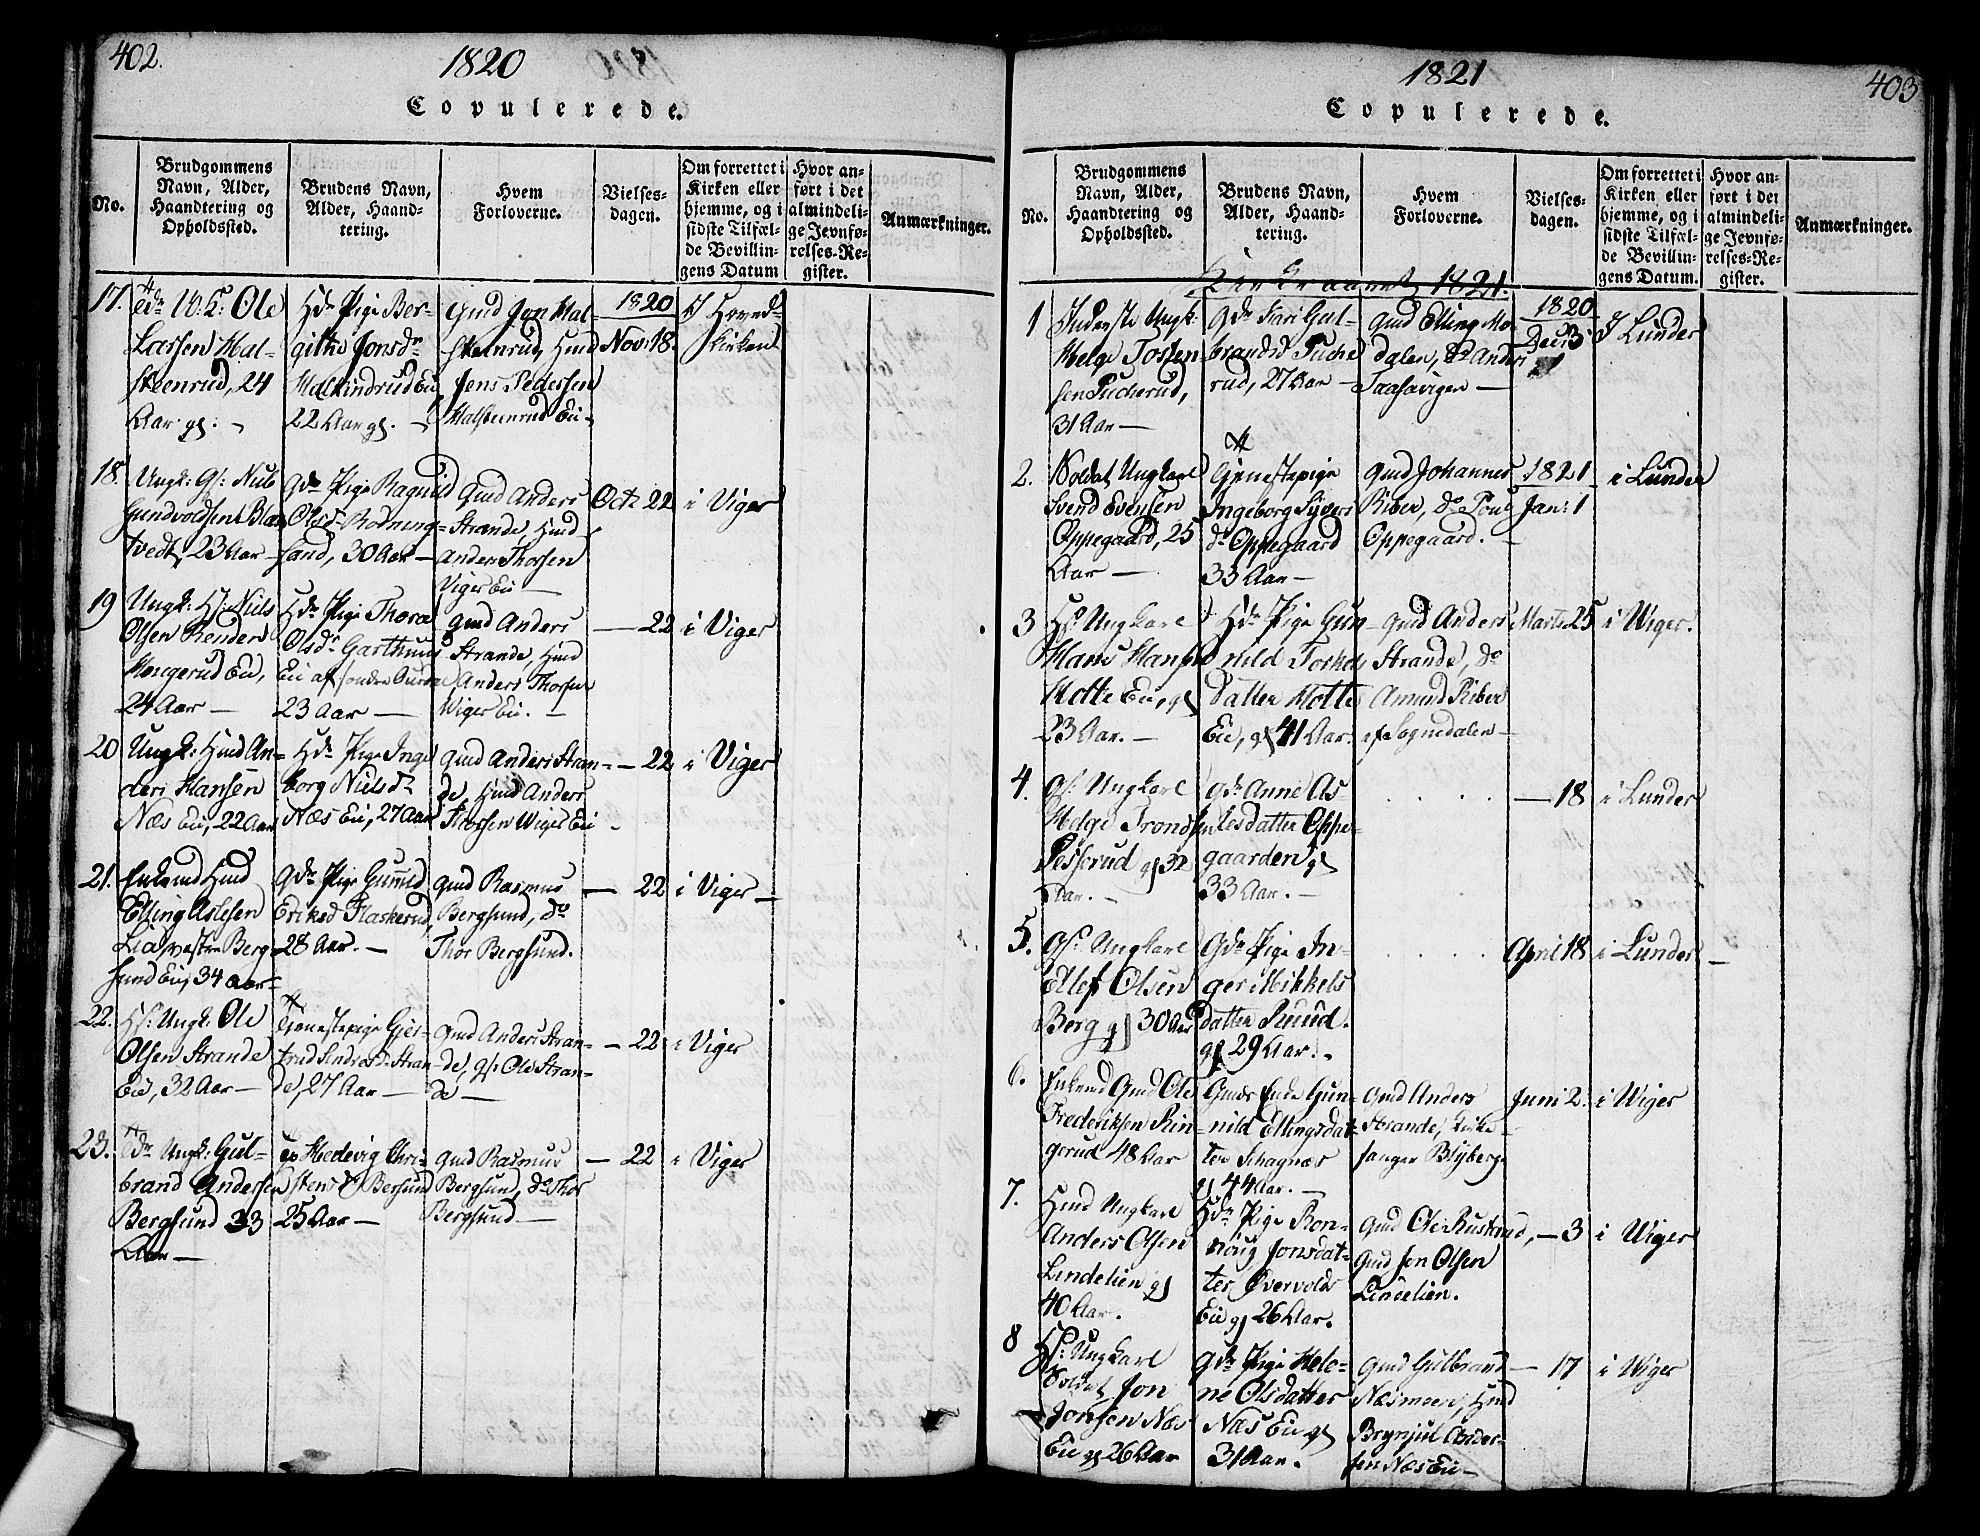 402.
1820
Copulerede.
No.
Brudgommens
Navn, Alder,
Haandtering og
Opholdssted.
Brudens Navn,
Alder, Haand-
tering.
Hvem
Forloverne.
Vielses-
dagen.
Om forrettet i
Kirken eller
hjemme, og i
sidste Tilfæl-
de Bevillin-
gens Datum
Hvor an-
ført i det
almindeli-
ge Jevnfø-
relses-Re-
gister.
Anmærkninger.
17.
Ole
Larsen Hal-
steenrud, 24
Aar gl.
Pige Ber-
githe Jonsdr
22 Aar gl.
Gmd Jon Hal-
steenrud, Hmd
Jens Pedersen
Halsteenrud Eie
1820
Nov: 18.
Hoved-
kirken
18.
Ungk: Gs: Nils
Gundvoldsen
tvedt, 23 Aar
Gdr Pige Ragnild
Olsdr Rodning-
sand, 30 Aar
Gmd Anders
Strande, Hmd
Anders Thorsen
Viger Eie
Octr 22
i Viger
19
Ungk: Hs: Niels
Olsen Renden
Hengerud Eie,
24 Aar
Hdr Pige Thora
Olsdr Garthus
Eie af søndre Aurdal
23 Aar
Gmd Anders
Strande, Hmd
Anders Thorsen
Wiger Eie.
— 22
i Viger
20
Ungk: Hmd An-
ders Hansen
Næs Eie, 22 Aar
Hdr Pige Inge-
borg Nielsdr
Næs Eie, 27 Aar
Gmd Anders Stran-
de, Hmd Anders
Thorsen Wiger Eie
— 22
i Viger
21.
Enkemd Hmd
Elling Aslesen
Lia vestre Berg-
sund Eie, 34 Aar
Gdr Pige Gunild
Eriksd Flaskerud,
28 Aar.
Gmd Rasmus
Bergsund, do
Thor Bergsund.
— 22
i Viger
22.
Hs: Ungk: Ole
Olsen Strande
Eie, 32 Aar
Tjenestepige Gjer-
trud Stran-
de, 27 Aar
Gmd Anders Stran-
de, Gs: Ole Stran-
de
— 22
i Viger
23.
Ungk: Gul-
brand Andersen
Bergsund 33
Aar
Hedevig Chri-
stensd Bersund
25 Aar
Gmd Rasmus
Bergsund, do Thor
Bergsund
— 22
i Viger
403
1821
Copulerede.
No.
Brudgommens
Navn, Alder,
Haandtering og
Opholdssted.
Brudens Navn,
Alder, Haand-
tering.
Hvem
Forloverne.
Vielses-
dagen.
Om forrettet i
Kirken eller
hjemme, og i
sidste Tilfæl-
de Bevillin-
gens Datum.
Hvor an-
ført i det
almindeli-
ge Jevnfø-
relses-Re-
gister.
Anmærkninger.
Kirkeaaret 1821.
1
Inderste Ungk:
Helge Torsten-
sen Tucherud,
31 Aar
Gdr Kari Gul-
brandsd Tuche-
rud, 27 Aar
Gmd Elling Mo-
dalen, do Anders
1820
Decbr
I Lunder
2.
Soldat Ungkarl
Svend Evensen
Oppegaard, 25
Aar
Tjenestepige
Ingeborg Syvers
dr Oppegaard
33 Aar
Gmd Johannes
Riber, do Poul
Oppegaard.
1821
Jan: 1
i Lunder
3
Hs: Ungkarl
Hans Hansen
Hotte Eie, gl
23 Aar.
Hdr Pige Gun-
nild Torkels
datter Hotte
Eie, gl 41 Aar.
Gmd Anders
Strande, do
Amund Riber
af Sognedalen
Marts 25
i Wiger.
4.
Gs: Ungkarl
Helge Trondsen
Pesserud gl 32
Aar.
Gdr Anne As-
lesdatter Oppe-
gaarden gl
33 Aar.
— 18
i Lunder
5.
Gs: Ungkarl
Ellef Olsen
Berg gl 30 Aar
Gdr Pige In-
ger Mikkels
datter Ruud.
gl 29 Aar.
April 18
i Lunder
6.
Enkemd Gmd Ole
Frederiksen Rin-
gerud 48 Aar
Gmds Enke Gun-
nild Ellingsdat-
ter Skagnæs
gl 44 Aar.
Gmd Anders
Strande, Kirke-
sanger Blyberg
Juni 2.
i Wiger
7.
Hmd Ungkarl
Anders Olsen
Lindelien gl
40 Aar.
Hdr Pige Ron-
noug Jonsdat-
ter Øvervolds
Eie gl 26 Aar.
Gmd Ole Rustand,
Gmd Jon Olsen
Lindelien.
— 3
i Wiger
8
Hs: Ungkarl
Soldat Jon
Jonsen Næs
Eie gl 26 Aar
Gdr Pige Hele-
ne Olsdatter
Næs Eie gl
31 Aar.
Gmd Gulbrand
Næsmoen, Hmd
Brynjul Ander-
sen Næs Eie
— 17
i Wiger